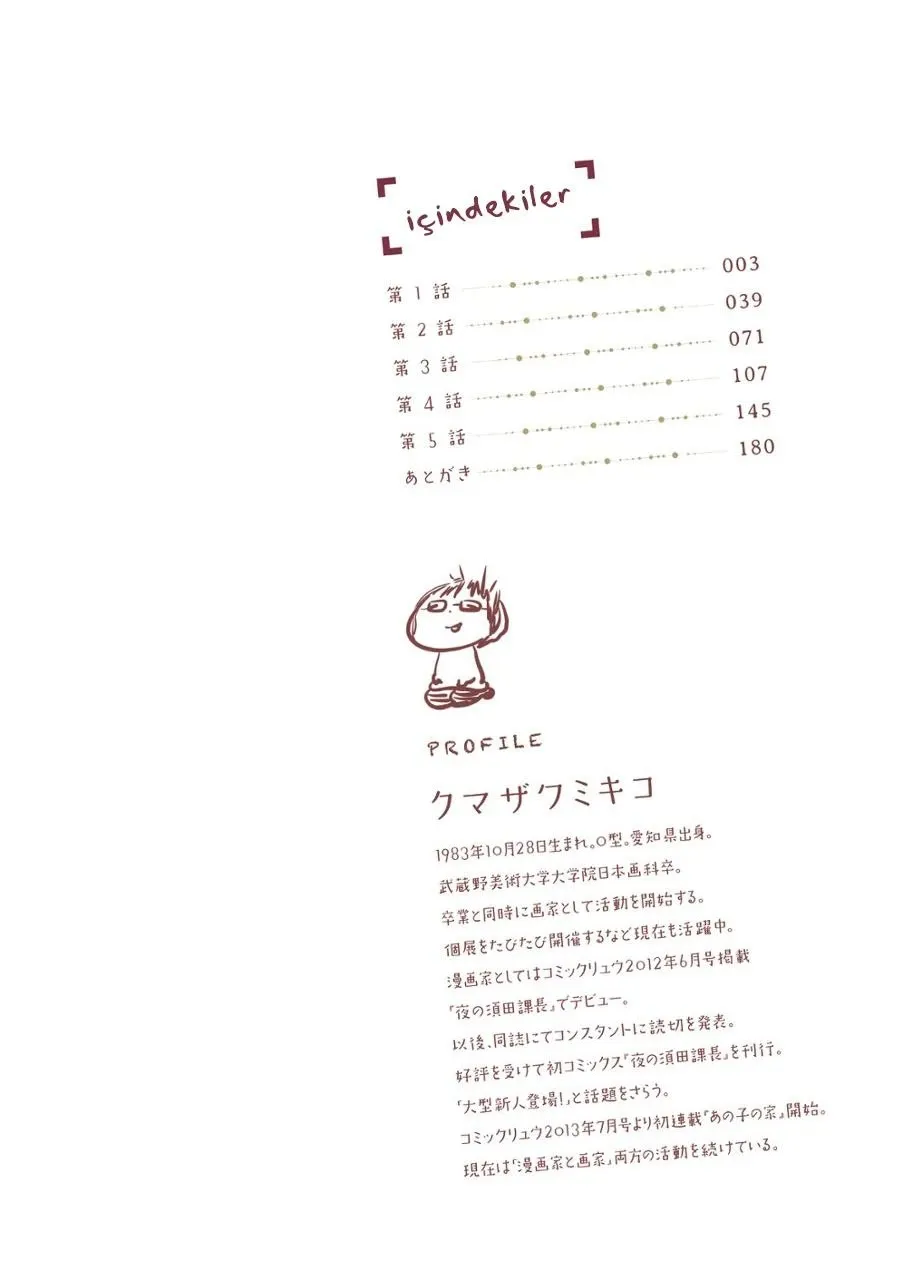 içindekiler
第 1 話 003
第 2 話 039
第 3 話 071
第 4 話 107
第 5 話 145
あとがき 180
PROFILE
クマザクミキコ
1983年10月28日生まれ。O型。愛知県出身。
武蔵野美術大学大学院日本画科卒。
卒業と同時に画家として活動を開始する。
個展をたびたび開催するなど現在も活躍中。
漫画家としてはコミックリュウ2012年6月号掲載
『夜の須田課長』でデビュー。
以後、同誌にてコンスタントに読切を発表。
好評を受けて初コミックス『夜の須田課長』を刊行。
「大型新人登場!」と話題をさらう。
コミックリュウ2013年7月号より初連載『あの子の家』開始。
現在は「漫画家と画家」両方の活動を続けている。